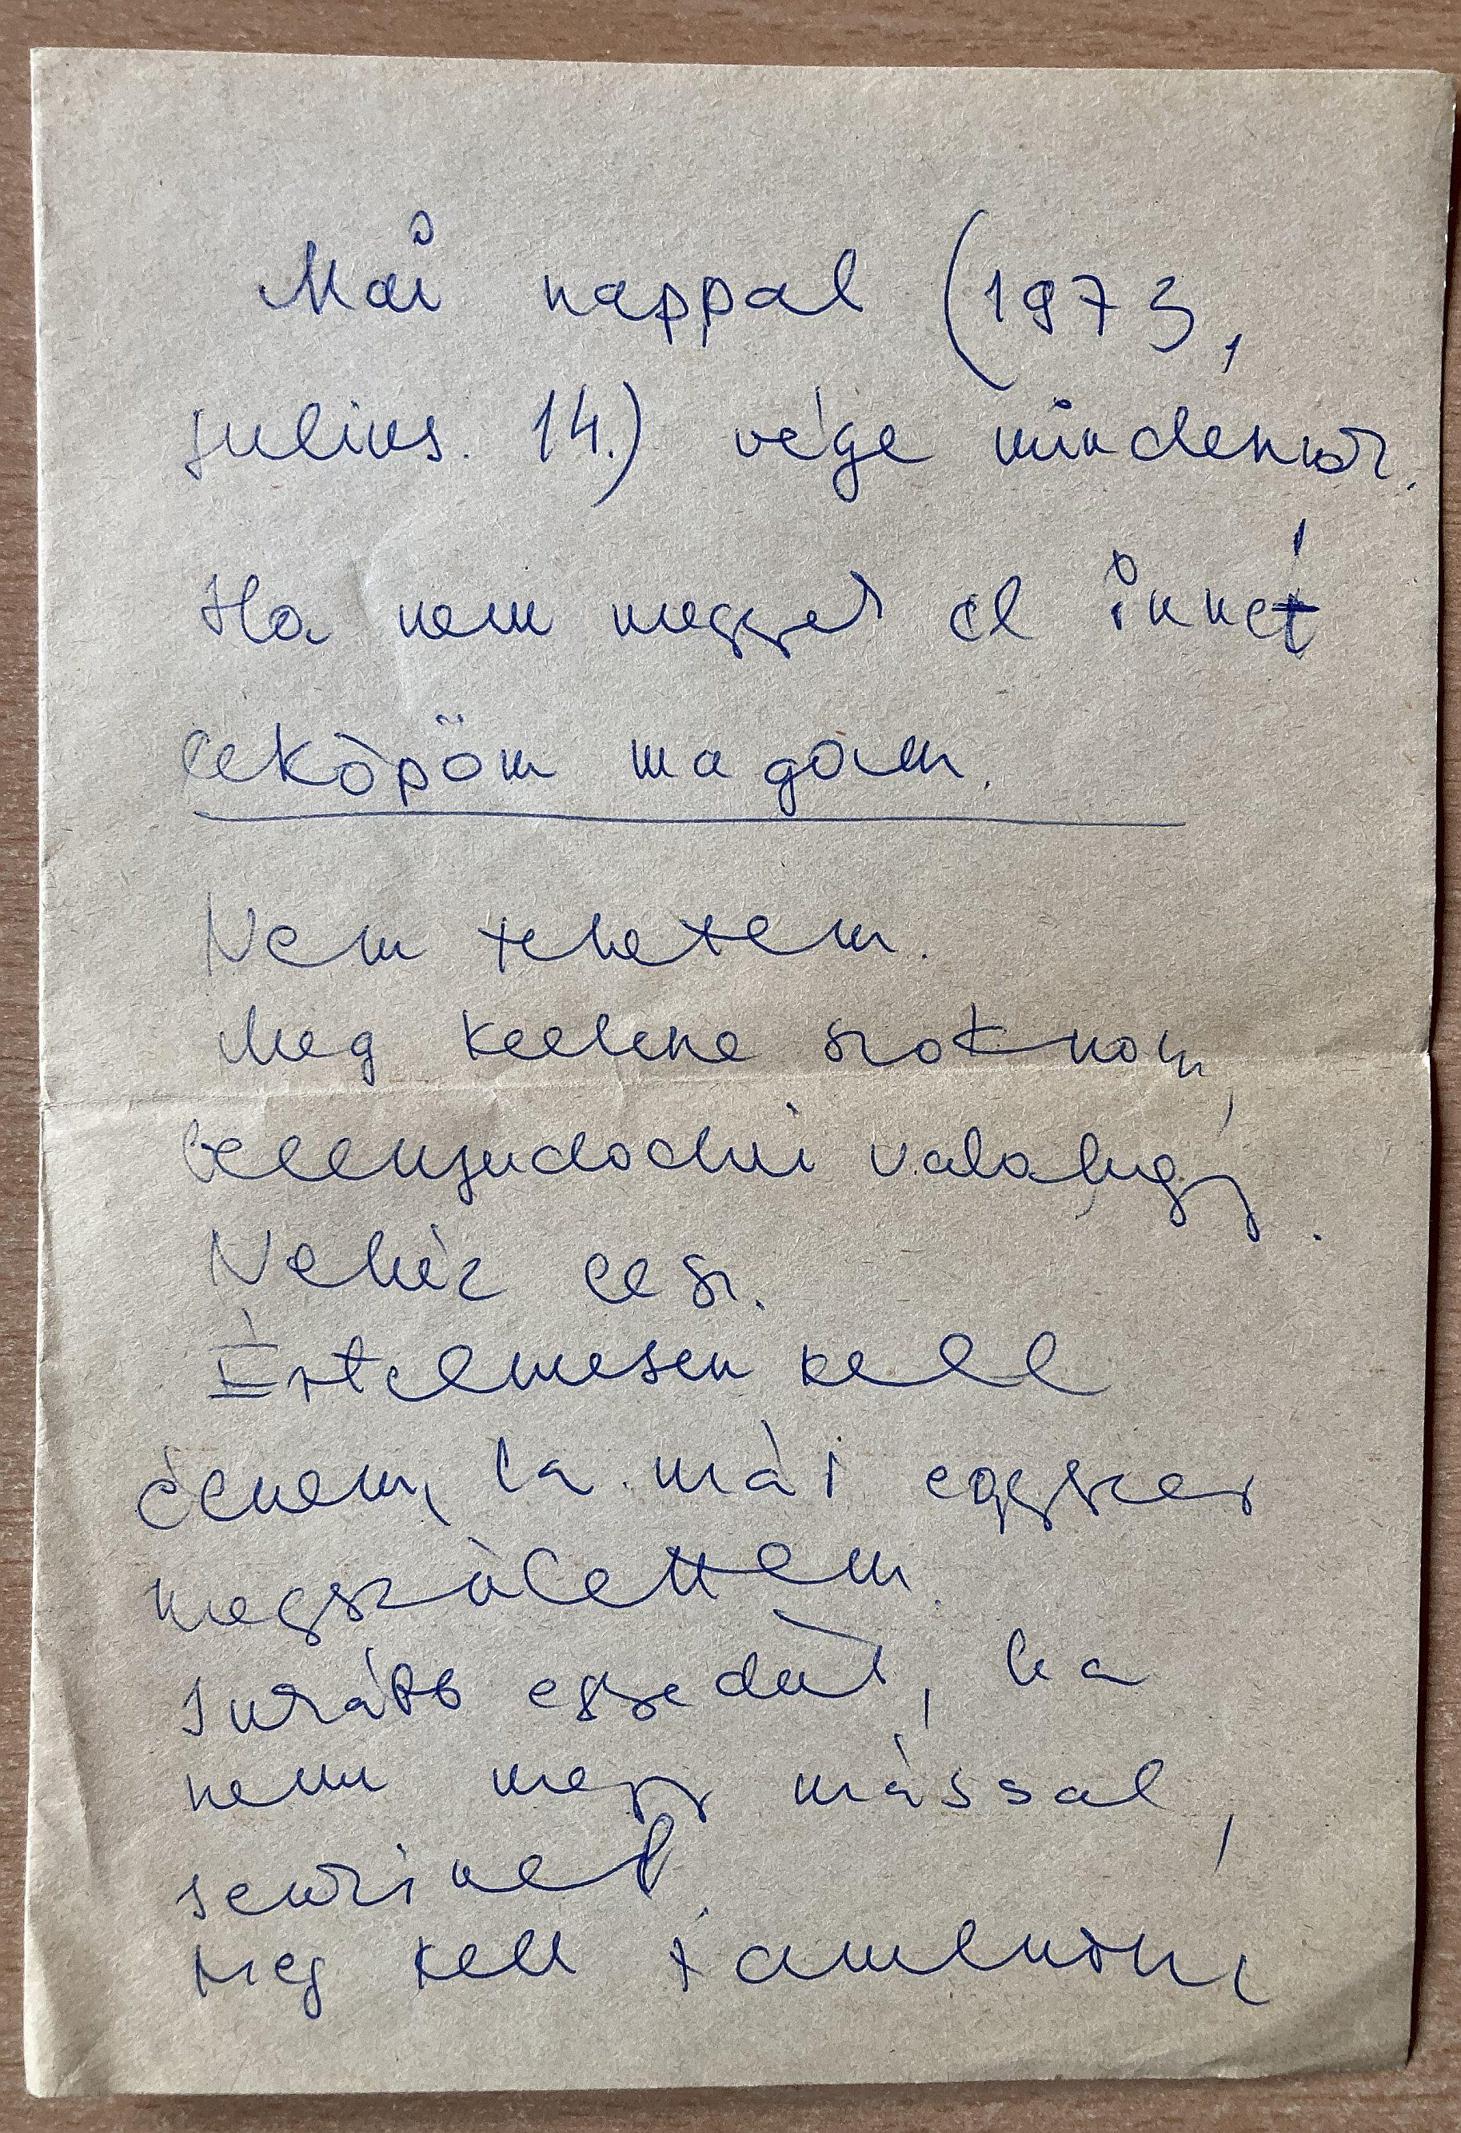 Mai nappal (1973,
julius. 14.) vége mindennek.
Ha nem megyek el innét
leköpöm magam.
Nem tehetem.
Meg kellene szoknom,
belenyudodni valahogy.
Nehéz lesz.
Értelmesen kell
élnem, ha már egyszer
megszülettem.
Inkább egyedül, ha
nem megy mással,
senkivel.
Meg kell tanulnom